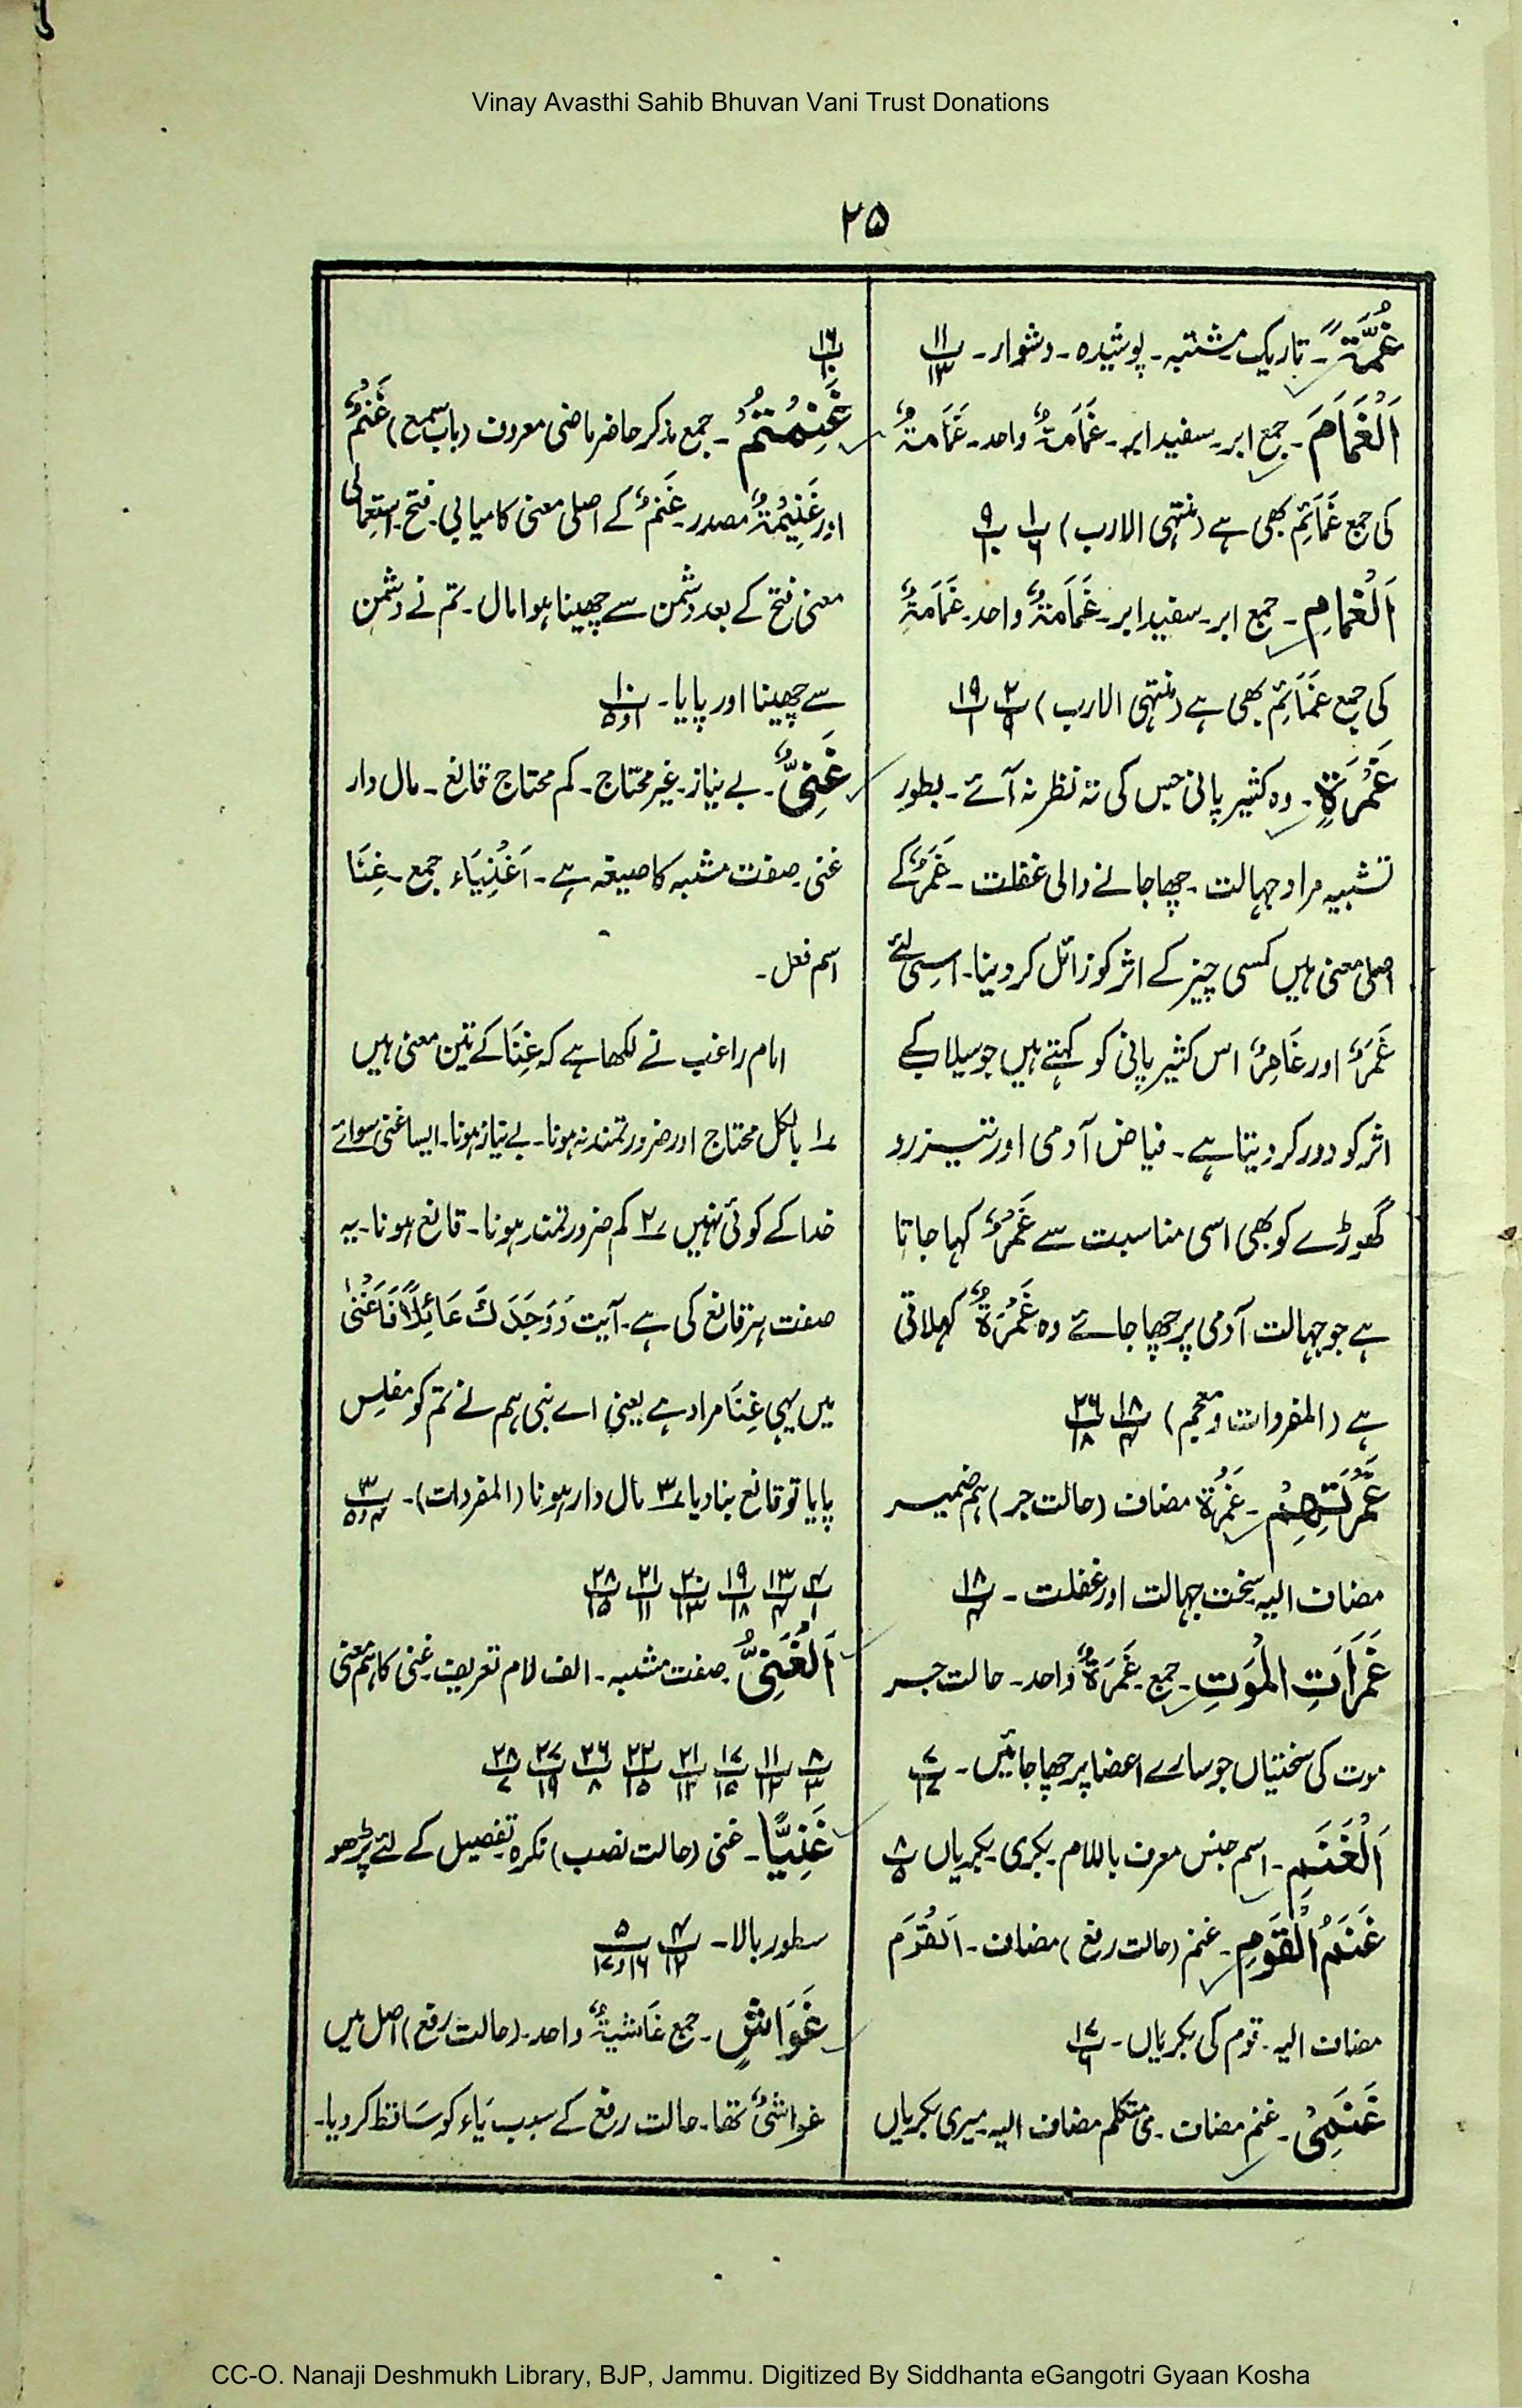 Vinay Avasthi Sahib Bhuvan Vani Trust Donations
۲۵
غُمَّةً ۔ تاریک مشتبہ۔ پوشیدہ۔ دشوار۔ ۱۱/۱۳
اَلْغَمَامَ ۔ جمع ابر۔ سفید ابر۔ غَمَامَۃٌ واحد۔ غَمَامَۃٌ
کی جمع غَمَائِمُ بھی ہے (منتہی الارب) ۱/۶ ۹/۱۰
اَلْغَمَامِ ۔ جمع ابر۔ سفید ابر۔ غَمَامَۃٌ واحد۔ غَمَامَۃٌ
کی جمع غَمَائِمُ بھی ہے (منتہی الارب) ۲/۹ ۱۹/۱
غَمْرَةٍ ۔ وہ کثیر پانی جس کی تہ نظر نہ آئے۔ بطور
تشبیہ مراد جہالت۔ چھا جانے والی غفلت۔ غَمْرٌ کے
اصلی معنی ہیں کسی چیز کے اثر کو زائل کر دینا۔ اسی لئے
غَمْرٌ اور غَامِرٌ اس کثیر پانی کو کہتے ہیں جو سیلاب کے
اثر کو دور کر دیتا ہے۔ فیاض آدمی اور تیز رو
گھوڑے کو بھی اسی مناسبت سے غَمْرٌ کہا جاتا
ہے جو جہالت آدمی پر چھا جائے وہ غَمْرَۃٌ کہلاتی
ہے (المفردات و معجم) ۱۸/۴ ۲۶/۱۸
غَمْرَتِهِمْ ۔ غَمْرَۃ مضاف (حالت جر) ہم ضمیر
مضاف الیہ سخت جہالت اور غفلت۔ ۱۸/۴
غَمَرَاتِ الْمَوْتِ ۔ جمع۔ غَمْرَۃٌ واحد۔ حالت جر
موت کی سختیاں جو سارے اعضا پر چھا جائیں۔ ۷/۱۷
اَلْغَنَمِ ۔ اسم جنس معرف باللام۔ بکری بکریاں ۸/۵
غَنَمُ الْقَوْمِ ۔ غنم (حالت رفع) مضاف۔ اَلْقَوْمَ
مضاف الیہ۔ قوم کی بکریاں۔ ۱۷/۶
غَنَمِیْ ۔ غنم مضاف۔ ی متکلم مضاف الیہ میری بکریاں
۱۶/۱۰
غَنِمْتُمْ ۔ جمع مذکر حاضر ماضی معروف (باب سمع) غَنْمٌ
اور غَنِیْمَۃٌ مصدر۔ غَنْمٌ کے اصلی معنی کامیابی۔ فتح۔ استعمالی
معنی فتح کے بعد دشمن سے چھینا ہوا مال۔ تم نے دشمن
سے چھینا اور پایا۔ ۱۰/۱و۵
غَنِیٌّ ۔ بے نیاز۔ غیر محتاج۔ کم محتاج قانع۔ مال دار
غنی صفت مشبہ کا صیغہ ہے۔ اَغْنِیَاء جمع۔ غِنَا
اسم فعل۔
امام راغب نے لکھا ہے کہ غِنَا کے تین معنی ہیں
۱؎ بالکل محتاج اور ضرورتمند نہ ہونا۔ بے نیاز ہونا۔ ایسا غنی سوائے
خدا کے کوئی نہیں ۲؎ کم ضرورتمند ہونا۔ قانع ہونا۔ یہ
صفت ہر قانع کی ہے۔ آیت وَوَجَدَكَ عَائِلًا فَاَغْنٰی
میں یہی غِنَا مراد ہے یعنی اے نبی ہم نے تم کو مفلس
پایا تو قانع بنا دیا ۳؎ مال دار ہونا (المفردات)۔ ۳/۴و۵
۴/۱ ۱۳/۴ ۱۹/۱۸ ۲۰/۱۳ ۲۱/۱۱ ۲۸/۱۵
اَلْغَنِیُّ ۔ صفت مشبہ۔ الف لام تعریف۔ غنی کا ہم معنی
۸/۳ ۱۱/۱۲ ۱۷/۱۵ ۲۱/۱۲ ۲۲/۱۵ ۲۶/۸ ۲۷/۱۹ ۲۸/۷
غَنِیًّا ۔ غنی (حالت نصب) نکرہ تفصیل کے لئے پڑھو
سطور بالا۔ ۴/۱۲ ۵/۱۶و۱۷
غَوَاشٍ ۔ جمع غَاشِیَۃٌ واحد۔ (حالت رفع) اصل میں
غواشیُ تھا۔ حالت رفع کے سبب یَاء کو سَاقط کر دیا۔
CC-O. Nanaji Deshmukh Library, BJP, Jammu. Digitized By Siddhanta eGangotri Gyaan Kosha